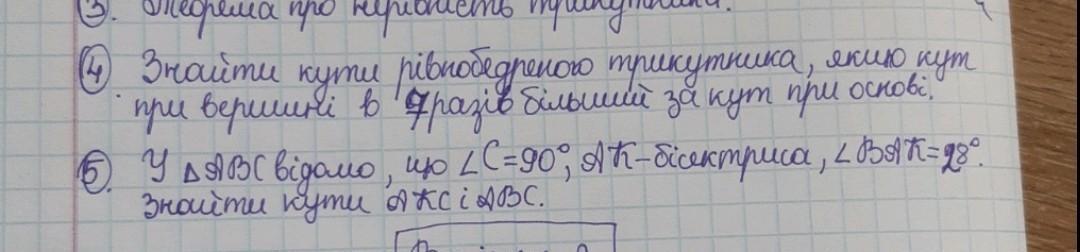 3. Теорема про нерівність трикутника.
4 Знайти кути рівнобедреного трикутника, якщо кут
при вершині в 7 разів більший за кут при основі.
5. У △ABC відомо, що ∠C=90°, AK-бісектриса, ∠BAK=28°.
Знайти кути AKC і ABC.